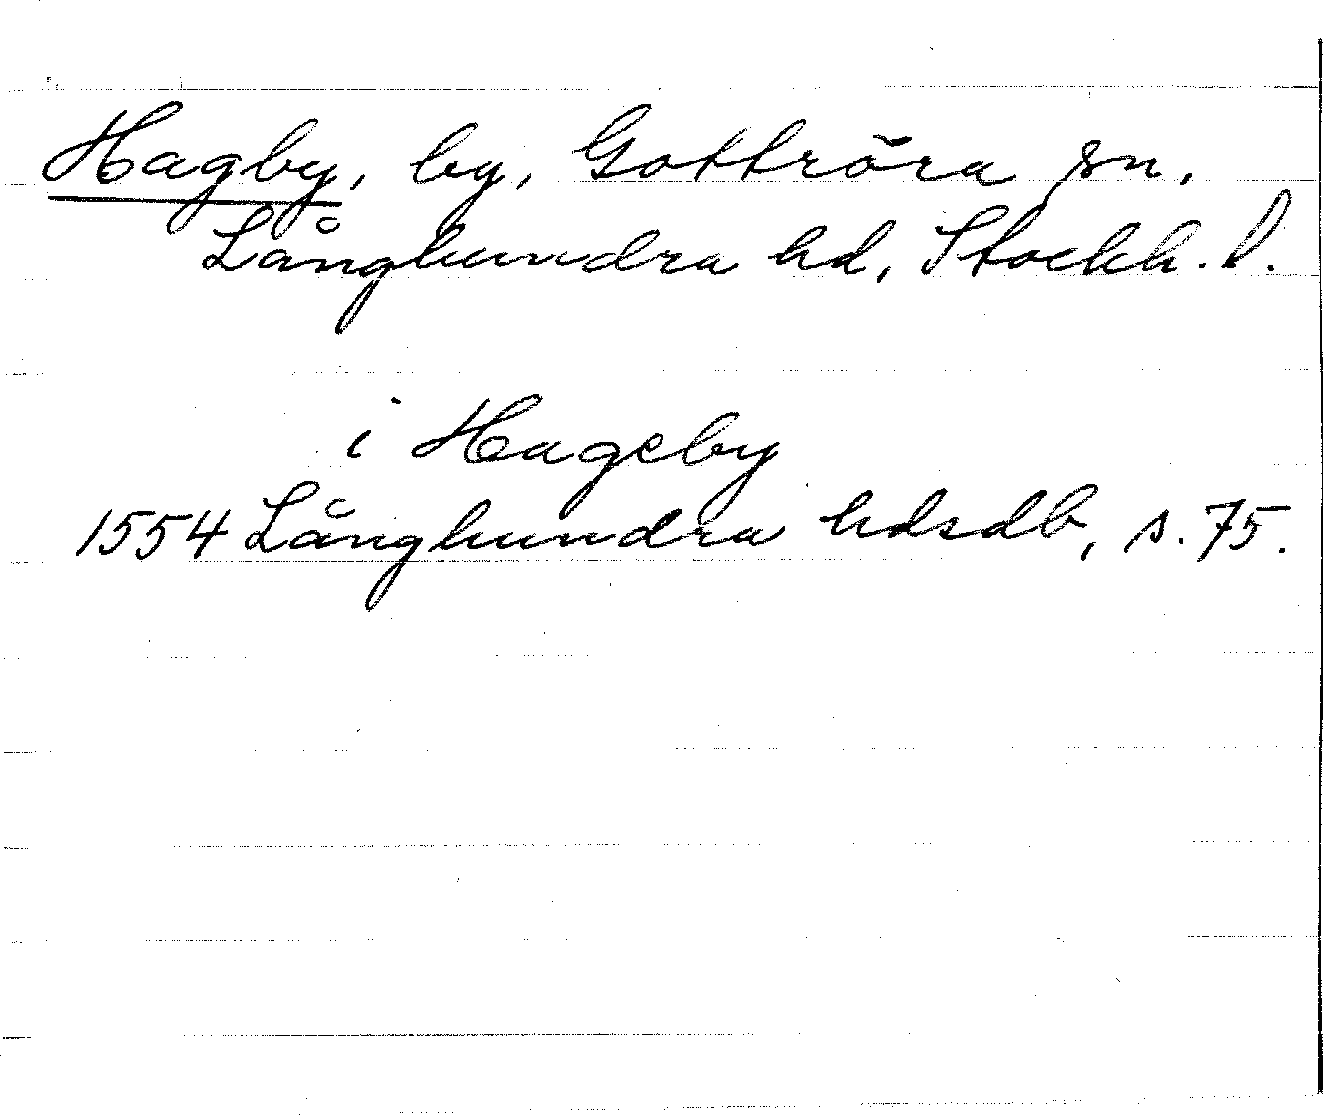 Hagby, by, Gottröra sn,
Långhundra hd, Stockh. l.
i Hageby
1554 Långhundra hdsdb, s. 75.